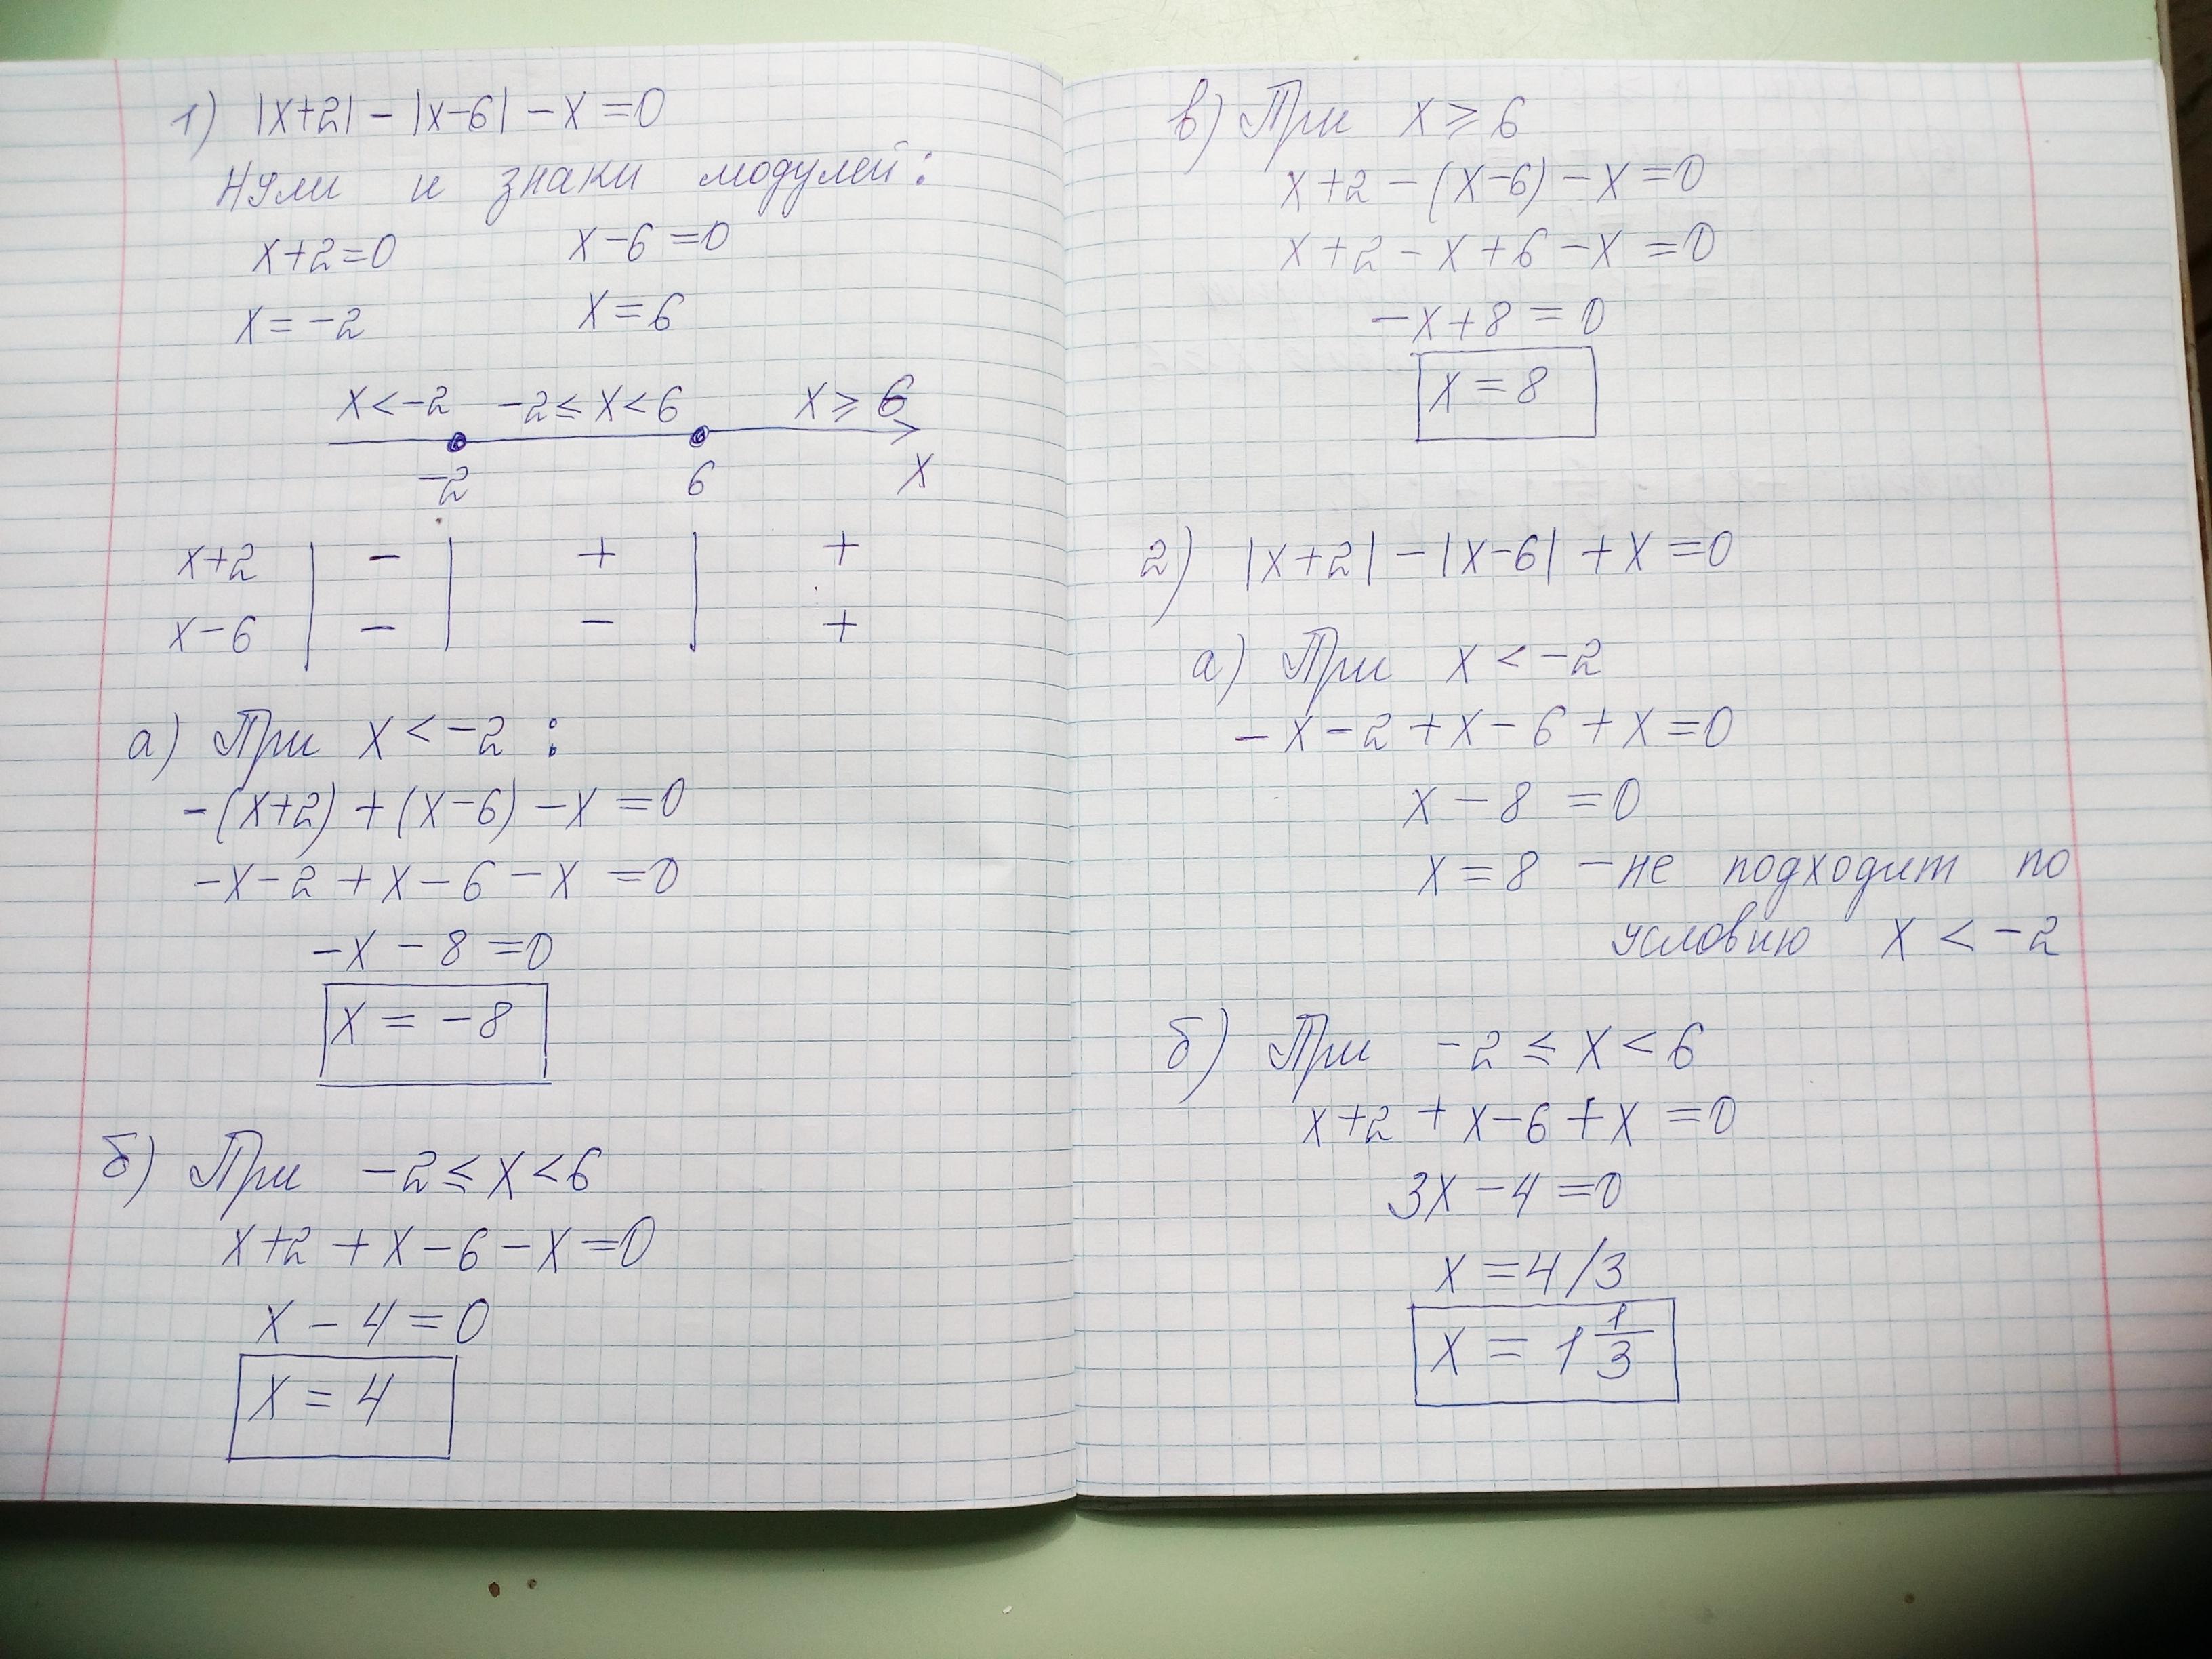 1) |x+2| - |x-6| - x = 0
Нули и знаки модулей:
x+2=0 x-6=0
x=-2 x=6
x<-2 -2≤x<6 x≥6
-2 6 x
x+2 | - | + | +
x-6 | - | - | +
а) При x<-2:
-(x+2)+(x-6)-x=0
-x-2+x-6-x=0
-x-8=0
x=-8
б) При -2≤x<6
x+2+x-6-x=0
x-4=0
x=4
в) При x≥6
x+2-(x-6)-x=0
x+2-x+6-x=0
-x+8=0
x=8
2) |x+2|-|x-6|+x=0
а) При x<-2
-x-2+x-6+x=0
x-8=0
x=8 - не подходит по
условию x<-2
б) При -2≤x<6
x+2+x-6+x=0
3x-4=0
x=4/3
x=1 1/3